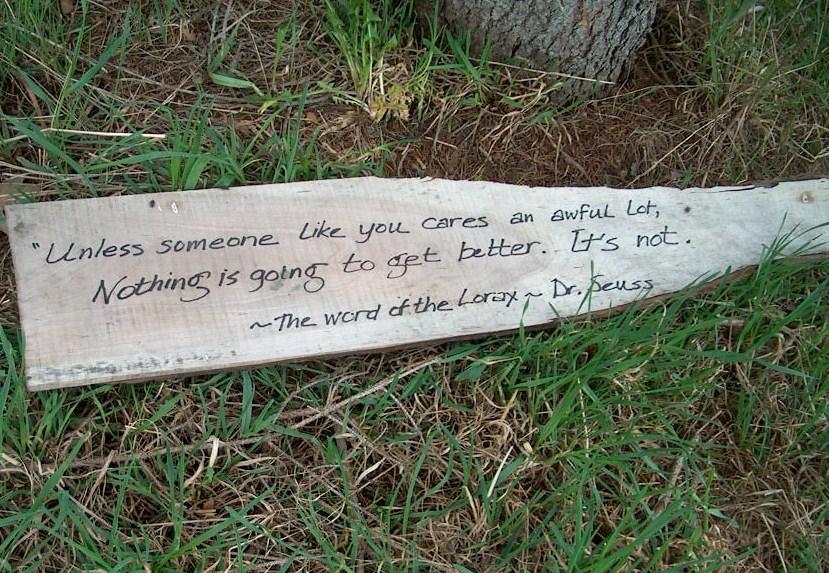 "Unless someone like you cares an awful lot,
Nothing is going to get better. It's not.
~The word of the Lorax ~ Dr. Seuss